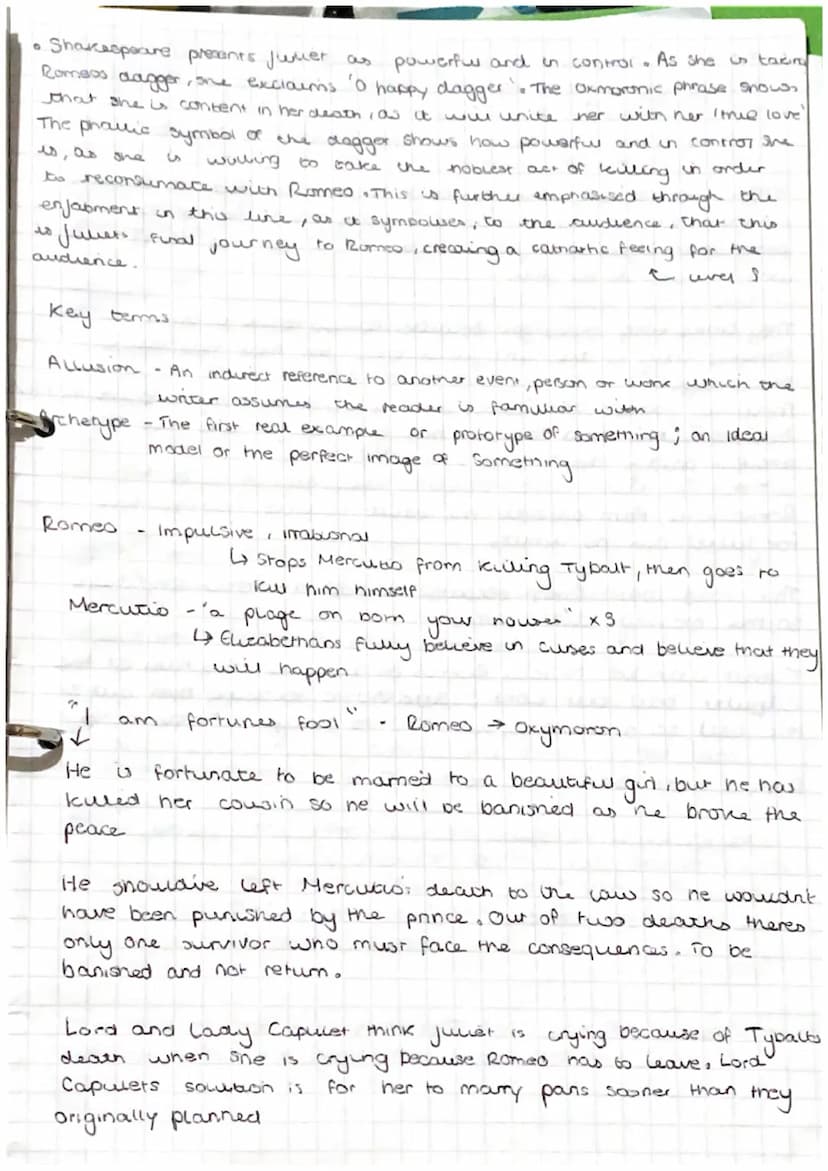 • Shakespeare presents Juliet as powerful and in control. As she is taking
Romeos dagger, she exclaims 'O happy dagger'. The oxmoronic phrase shows
that she is content in her death, as it will unite her with her 'true love'
The phallic symbol of the dagger shows how powerful and in control she
is, as she is willing to take the noblest act of killing in order
to reconsumate with Romeo. This is further emphasised through the
enjabment in this line, as it sympolises, to the audience, that this
is Juliets final journey to Romeo, creating a cathartic feeling for the
audience.
↖ level
Key terms
Allusion - An indirect reference to another event, person or work which the
writer assumes the reader is familiar with
Archetype - The first real example or prototype of something; an ideal
model or the perfect image of something
Romeo - Impulsive, irrational
↳ Stops Mercutio from killing Tybalt, then goes to
kill him himself
Mercutio - 'a plage on both your houses' x3
↳ Elizabethans fully believe in curses and believe that they
will happen
"I am fortunes fool" - Romeo → oxymoron
↓
He is fortunate to be married to a beautiful girl, but he has
killed her cousin so he will be banished as he broke the
peace
He shouldive left Mercutios death to the law so he wouldnt
have been punished by the prince. Out of two deaths theres
only one survivor who must face the consequences. To be
banished and not return.
Lord and Lady Capulet think Juliet is crying because of Tybalts
death when she is crying because Romeo has to leave, Lord
Capulets solution is for her to marry paris sooner than they
originally planned